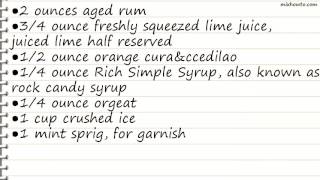 mixhowto.com
●2 ounces aged rum
●3/4 ounce freshly squeezed lime juice,
juiced lime half reserved
●1/2 ounce orange cura&ccedilao
●1/4 ounce Rich Simple Syrup, also known as
rock candy syrup
●1/4 ounce orgeat
●1 cup crushed ice
●1 mint sprig, for garnish